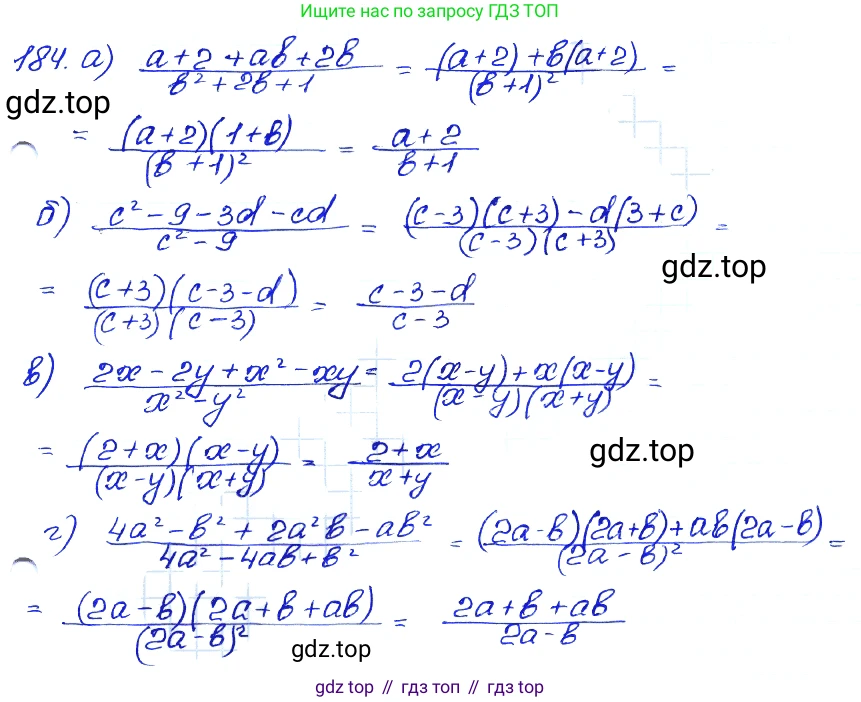 Ищите нас по запросу ГДЗ ТОП
184. а) (a+2+ab+2b)/(b²+2b+1) = ((a+2)+b(a+2))/(b+1)² =
gdz.top
= ((a+2)(1+b))/(b+1)² = (a+2)/(b+1)
б) (c²-9-3d-cd)/(c²-9) = ((c-3)(c+3)-d(3+c))/((c-3)(c+3)) =
gdz.top
= ((c+3)(c-3-d))/((c+3)(c-3)) = (c-3-d)/(c-3)
в) (2x-2y+x²-xy)/(x²-y²) = (2(x-y)+x(x-y))/((x-y)(x+y)) =
= ((2+x)(x-y))/((x-y)(x+y)) = (2+x)/(x+y)
gdz.top
г) (4a²-b²+2a²b-ab²)/(4a²-4ab+b²) = ((2a-b)(2a+b)+ab(2a-b))/(2a-b)² =
= ((2a-b)(2a+b+ab))/(2a-b)² = (2a+b+ab)/(2a-b)
gdz.top
gdz top // гдз топ // gdz top